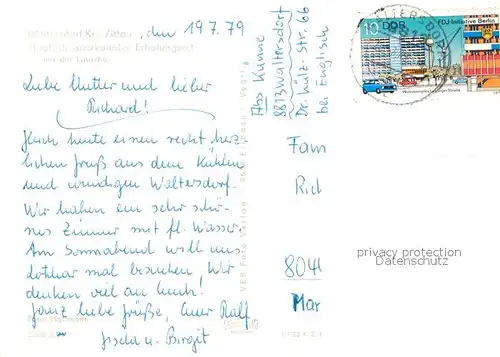 Waltersdorf Kr. Zittau, den 19.7.79
Staatlich anerkannter Erholungsort
Liebe Mutter und lieber
Richard!
Euch heute einen recht herz
lichen Gruß aus dem kühlen
und windigen Waltersdorf.
Wir haben ein sehr schö-
nes Zimmer mit fl. Wasser.
Am Sonnabend will uns
Lothar mal besuchen. Wir
denken viel an Euch!
Ganz liebe Grüße, Euer Ralf
Gisela u. Birgit
Abs Kunne
8813 Waltersdorf
Dr. Külz-Str. 66
bei Englisch
VEB Foto-Verlag
10 DDR
FDJ-Initiative Berlin
Fam
Rich
804
Mar
privacy protection
Datenschutz